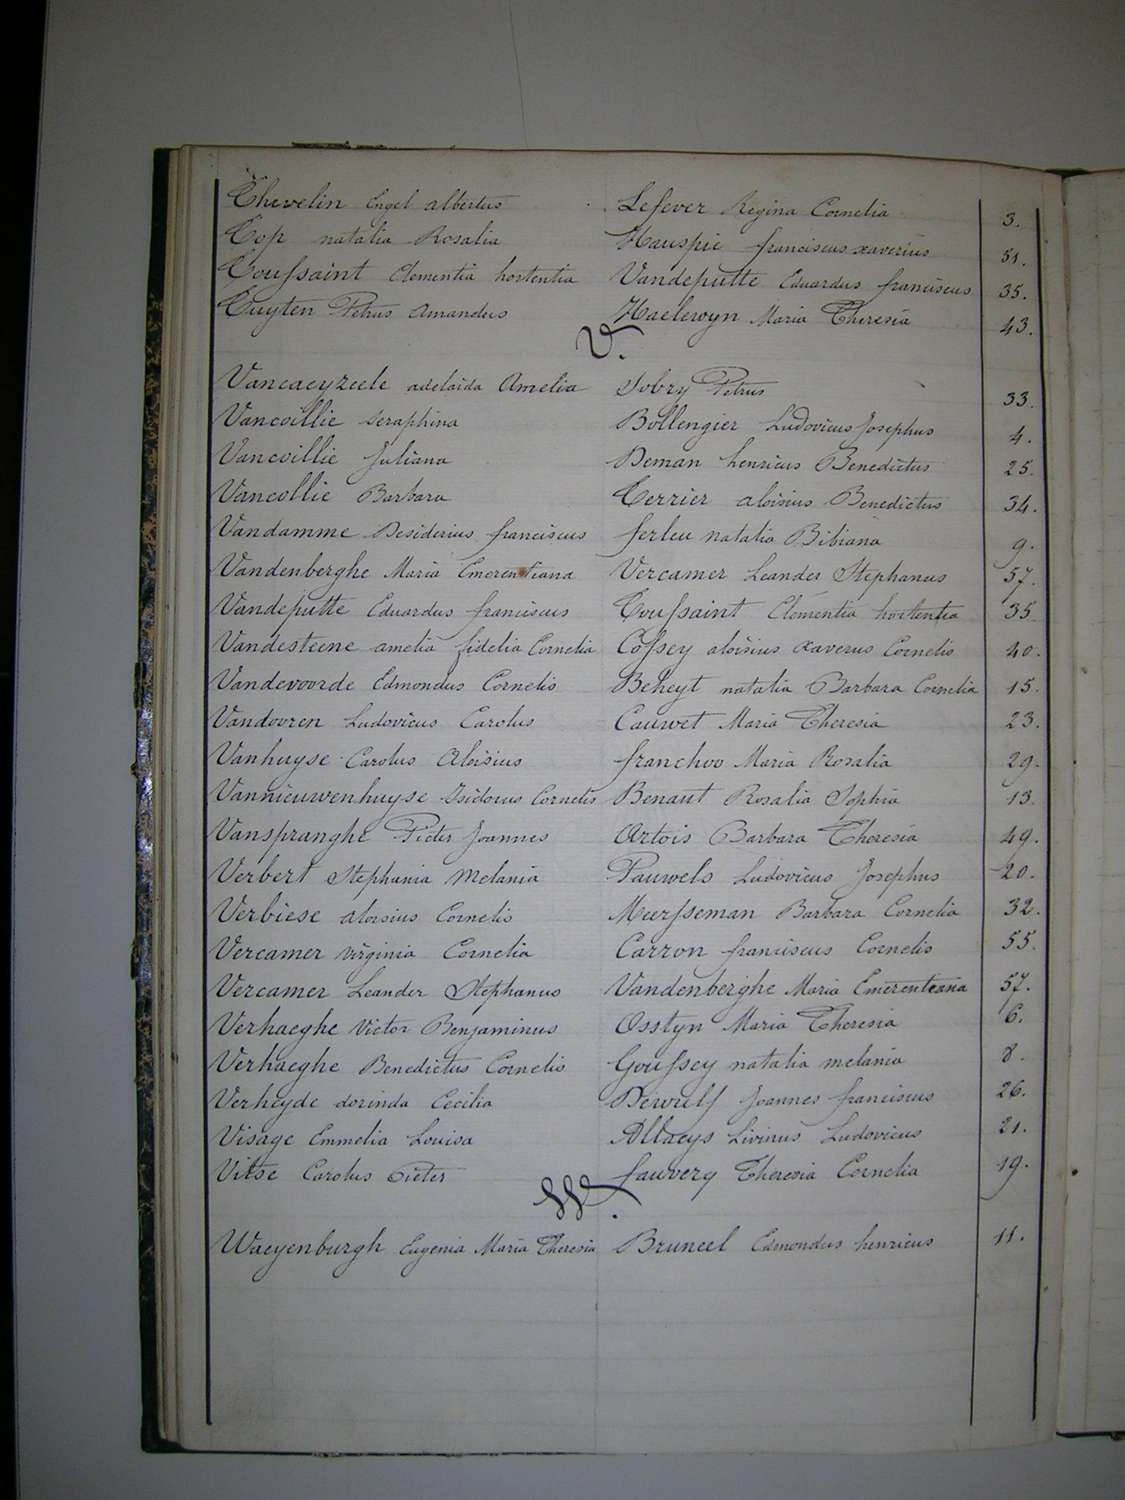 Thevelin Engel albertus Lefever Regina Cornelia 3.
Top natalia Rosalia Hauspie franciscus xaverius 51.
Toussaint Clementia hortentia Vandeputte Eduardus franciscus 35.
Tuyten Petrus Amandus Haelewyn Maria Theresia 43.
V.
Vancaeyzeele adelaida Amelia Dobry Petrus 33.
Vancoillie seraphina Bollengier Ludovicus Josephus 4.
Vancoillie Juliana Deman henricus Benedictus 25.
Vancollie Barbara Terrier aloisius Benedictus 34.
Vandamme Desiderius franciscus ferleu natalia Bibiana 9.
Vandenberghe Maria Emerentiana Vercamer Leander Stephanus 57.
Vandeputte Eduardus franciscus Toussaint Clementia hortentia 35
Vandesteene amelia fidelia Cornelia Cossey aloisius xaverus Cornelis 40.
Vandevoorde Edmondus Cornelis Beheyt natalia Barbara Cornelia 15.
Vandooren Ludovicus Carolus Cauwet Maria Theresia 23.
Vanhuyse Carolus Aloisius franchoo Maria Rosalia 29.
Vannieuwenhuyse Isidorus Cornelis Benaut Rosalia Sophia 13.
Vanspranghe Pieter Joannes Artois Barbara Theresia 49.
Verbert Stephania Melania Pauwels Ludovicus Josephus 20.
Verbiese aloisius Cornelis Meersseman Barbara Cornelia 32.
Vercamer virginia Cornelia Carron franciscus Cornelis 55.
Vercamer Leander Stephanus Vandenberghe Maria Emerenteana 57.
Verhaeghe Victor Benjaminus Osstyn Maria Theresia 6.
Verhaeghe Benedictus Cornelis Goussey natalia melania 8.
Verheyde dorinda Cecilia Dewulf Joannes franciscus 26.
Visage Emmelia Louisa Allaeys Livinus Ludovicus 21.
Vitse Carolus Pieter fauvery Theresia Cornelia 19.
W.
Waeyenburgh Eugenia Maria Theresia Bruneel Edmondus henricus 11.